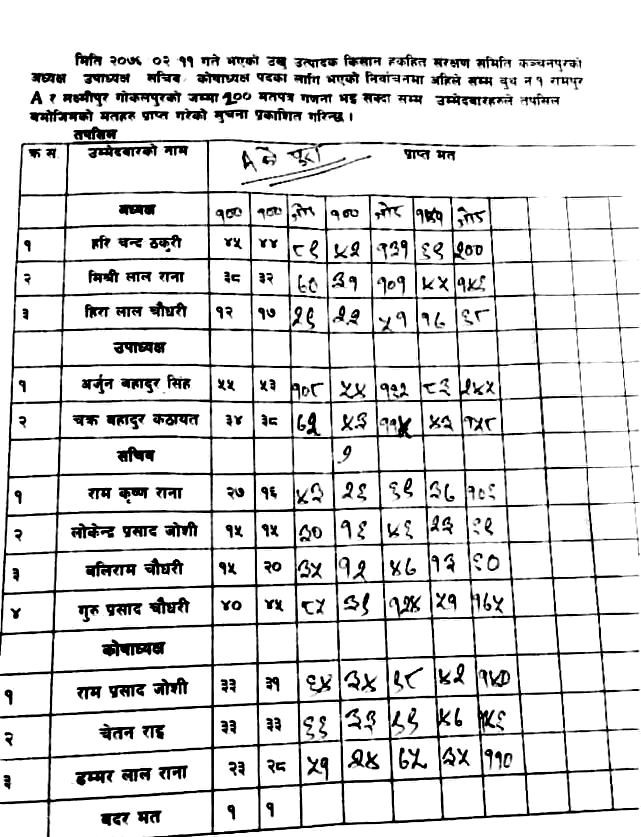 मिति २०७६ ०२ ११ गते भएको उखु उत्पादक किसान हकहित संरक्षण समिति कञ्चनपुरको
अध्यक्ष उपाध्यक्ष सचिव कोषाध्यक्ष पदका लागि भएको निर्वाचनमा अहिले सम्म बुथ न १ रामपुर
A र लक्ष्मीपुर गोकमपुरको जम्मा १०० मतपत्र गणना भइ सक्दा सम्म उम्मेदबारहरुले तपसिल
बमोजिमको मतहरु प्राप्त गरेको सुचना प्रकाशित गरिन्छ ।
तपसिल
क्र स उम्मेदबारको नाम A को पुरा प्राप्त मत
अध्यक्ष १०० १०० जोड १०० जोड १५१ जोड
१ हरि चन्द ठकुरी ४५ ४४ ८९ ४२ १३१ ६९ २००
२ मिश्री लाल राना ३८ ३२ ७० ३१ १०१ ४५ १४६
३ हिरा लाल चौधरी १२ १७ २९ २२ ५१ १७ ६८
उपाध्यक्ष
१ अर्जुन बहादुर सिंह ५५ ५३ १०८ ५४ १६२ ८३ २४५
२ चक्र बहादुर कठायत ३४ ३८ ७२ ४३ ११५ ४३ १५८
सचिव १
१ राम कृष्ण राना २७ १६ ४३ २६ ६९ ३७ १०६
२ लोकेन्द्र प्रसाद जोशी १५ १५ ३० १६ ४६ २३ ६९
३ बलिराम चौधरी १५ २० ३५ १२ ४७ १३ ६०
४ गुरु प्रसाद चौधरी ४० ४५ ८५ ३९ १२४ ५१ १७५
कोषाध्यक्ष
१ राम प्रसाद जोशी ३३ ३१ ६४ ३४ ९८ ४२ १४०
२ चेतन राइ ३३ ३३ ६६ ३३ ९९ ४७ १४६
३ डम्मर लाल राना २३ २८ ५१ २४ ७५ ३५ ११०
बदर मत १ १